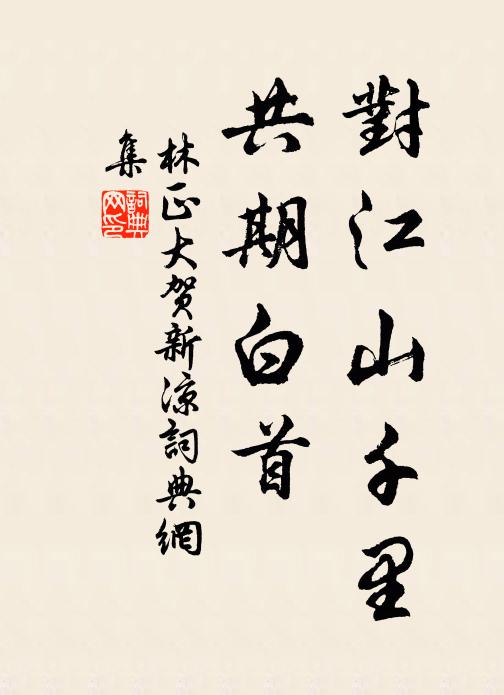 對江山千里
共期白首
林正大賀新涼詞典網
集
詞典網印